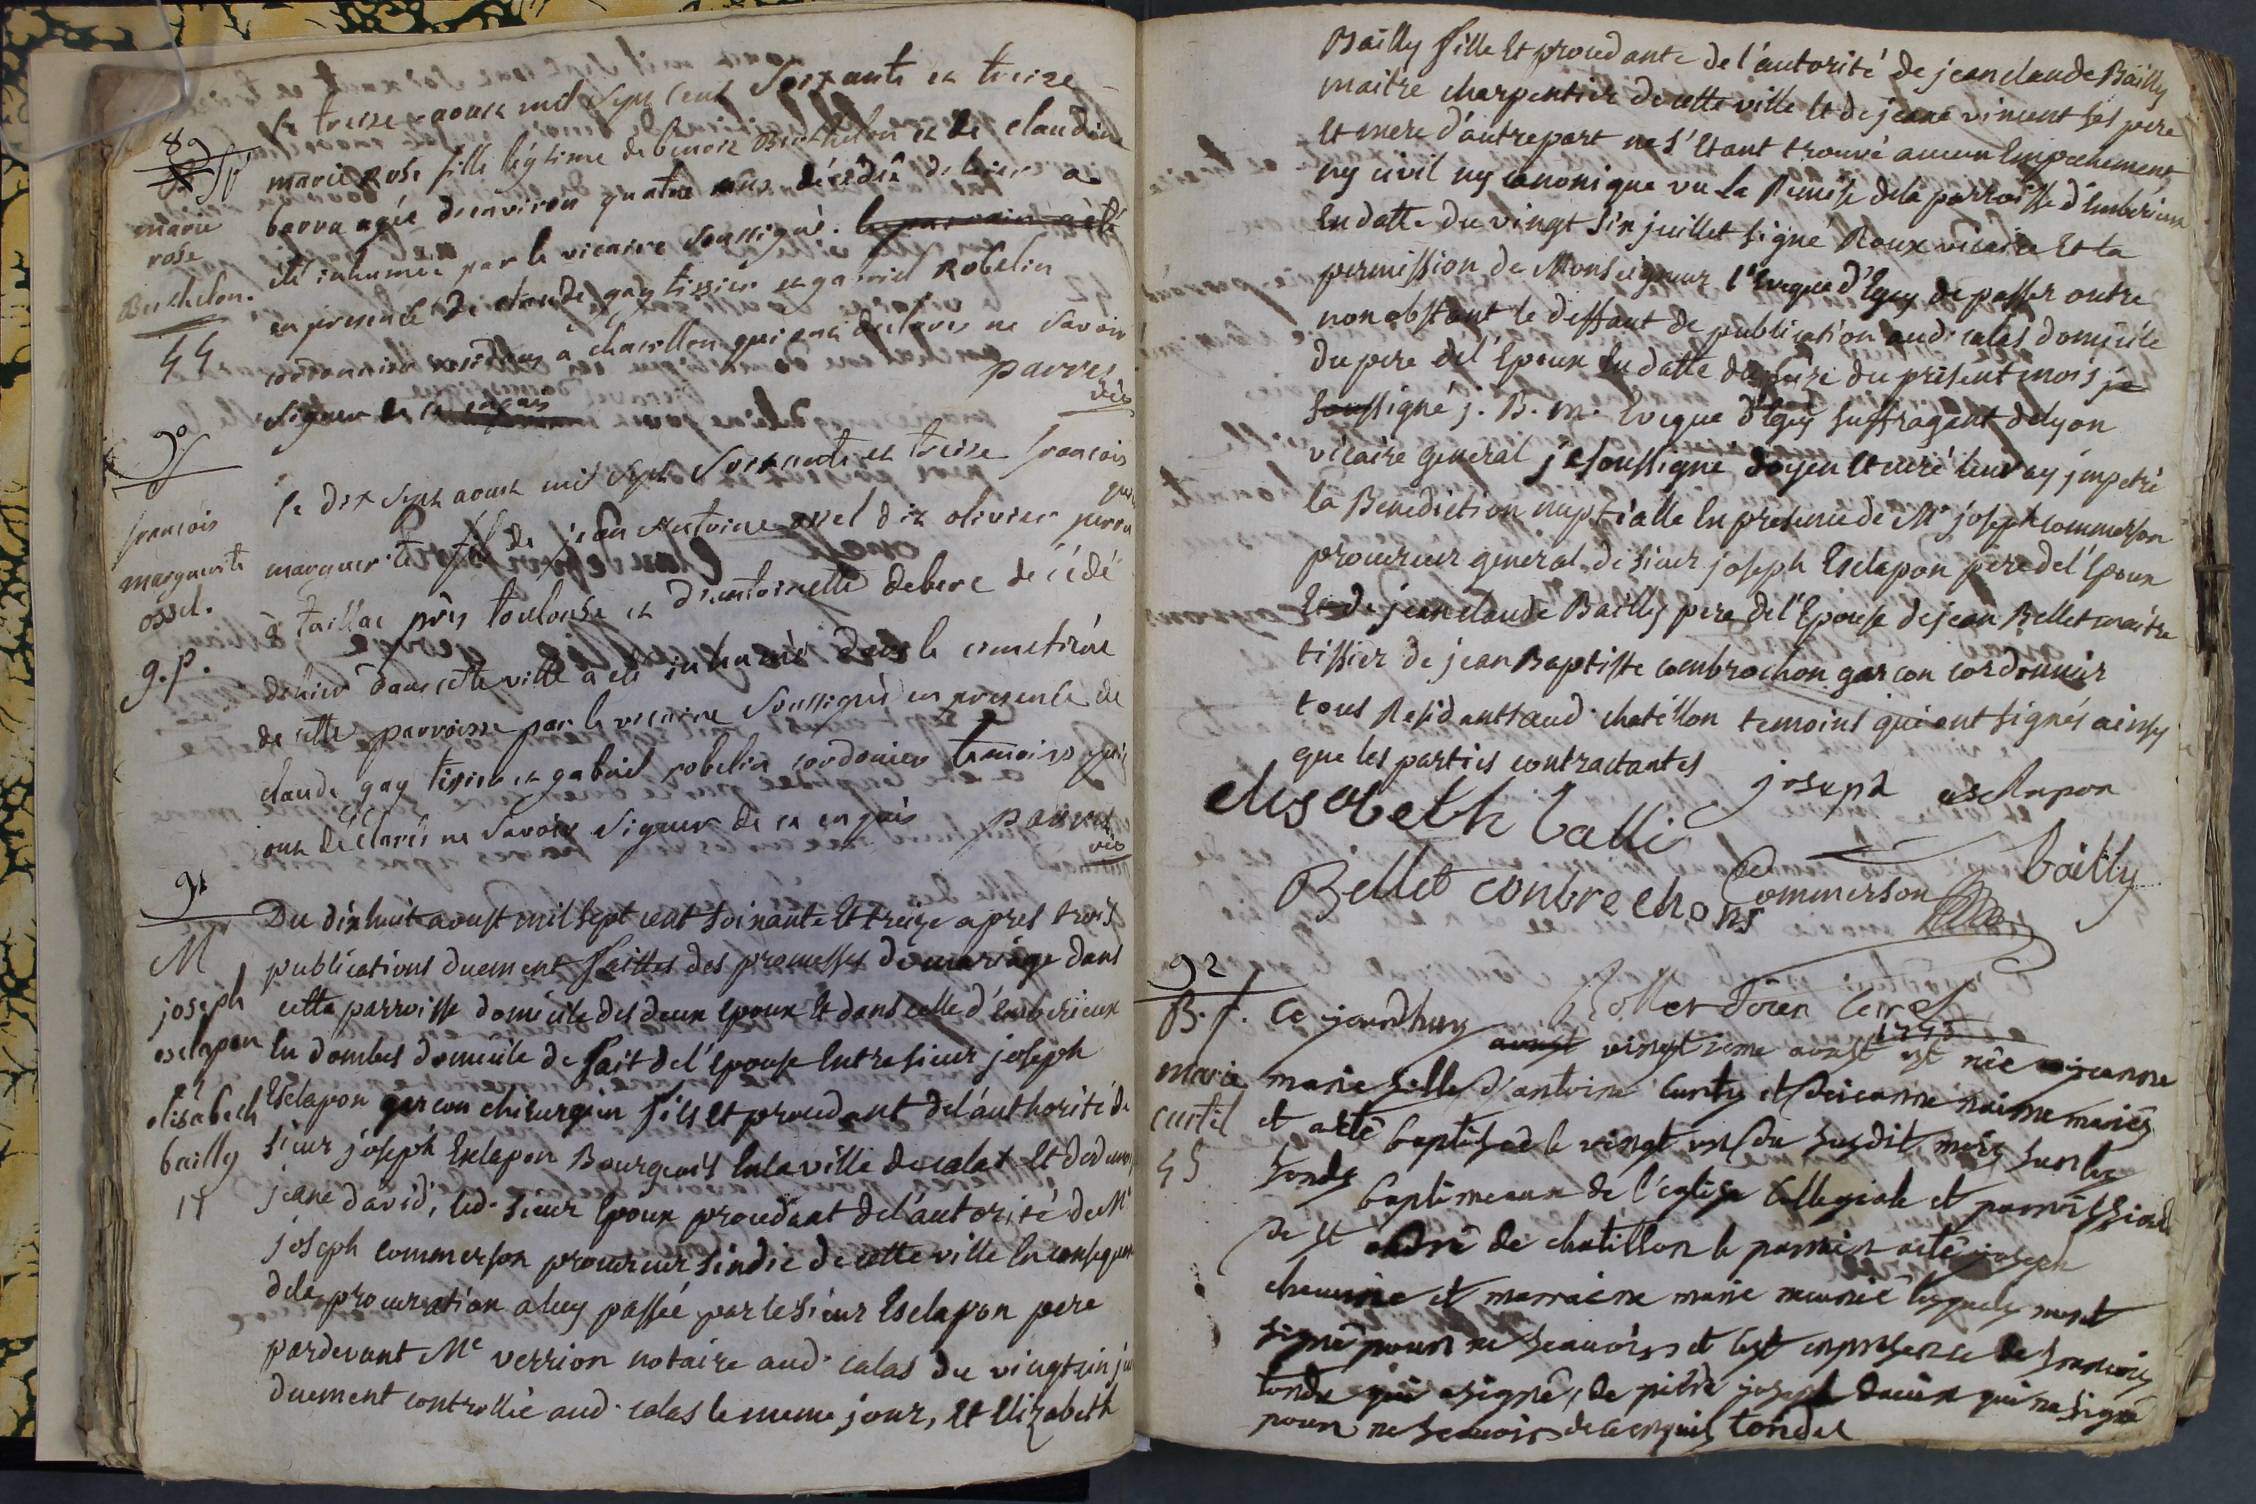 89
S.
marie
rose
Berthelon.
44
le treize aoust mil sept cent soixante et treize
marie rose fille légitime de benoit Berthelon et de claudine
barra agée denviron quatre ans décédée dehier a
été inhumée par le vicaire soussigné. le parrain a été
en presence de claude gay tissier et gabriel Robelin
cordonnier residans à chatillon qui ont declarés ne savoir
signer de ce enquis parres
vic
90
S
francois
marguerite
ossel.
g.p.
le dix sept aoust mil sept soixante et treize francois
marguerite fils de jean antoine ossel dit olivier
à taillac près toulouse et d'antoinette debere décédé
dehier dans cette ville a été inhumé dans le cimetière
de cette parroisse par le vicaire soussigné en presence de
claude gay tissier et gabriel robelin cordonier temoins qui
ont déclarés ne savoir signer de ce enquis parres
vic
91
M
joseph
esclapon
et
elisabeth
bailly
17
Du dixhuit aoust mil sept cent soixante et treize apres trois
publications duement faittes des promesses de mariage dans
cette parroisse domicile des deux epoux et dans celle d'Emberieux
En dombes domicile de fait de l'epouse Entre sieur joseph
Esclapon garcon chirurgien fils et procedant de l'authorité de
sieur joseph Esclapon Bourgeois En la ville de calas et de
jeane david, led. sieur Epoux procedant de l'autorité de Mr
joseph commerson procureur sindic de cette ville En consequen
dela procuration a luy passée par le sieur Esclapon pere
pardevant Me verrion notaire aud. calas du vingt six
duement controllée aud. calas le meme jour, Et Elizabeth
Bailly fille Et procedante de l'autorité de jean claude Bailly
maitre charpentier de cette ville Et de jeane vincent ses pere
Et mere d'autre part ne s'Etant trouvé aucun Empechement
ny civil ny canonique vu la Remise dela parroisse d'Emberieux
En datte du vingt six juillet signé Roux vicaire Et la
permission de Monseigneur l'Eveque d'Egey de passer outre
nonobstant le deffaut de publication aud. calas domicile
du pere de l'Epoux En datte du seize du présent mois je
soussigné j. B. m. Eveque d'Egey suffragant de lyon
vicaire general je soussigné doyen Et curé leur ay impetré
la Bénédiction nuptialle En presence de Mr joseph commerson
procureur général de sieur joseph Esclapon pere de l'Epoux
Et de jean claude Bailly pere de l'Epouse de jean Bellet maitre
tissier de jean Baptiste combrochon garcon cordonnier
tous Residants aud. chatillon temoins qui ont signés ainsy
que les parties contractantes
joseph esclapon
elisabeth balli
bailly
Commerson
Bellet conbrechons
doien Curé
92
B. f.
marie
curtil
45
Ce jourdhuy aoust vingtieme aoust 1773 est née jeanne
marie fille d'antoine Curty et de jeanne maries
et a été baptisée le vingt un du susdit mois sur les
fonds baptimeaux de l'eglise Collegiale et parroissiale
de st andré de chatillon le parrain a été joseph
et marraine marie lesquels nont
signé pour ne scavoir et cest en presence de francois
tondu qui a signé, de pierre joseph qui na signé
pour ne scavoir de ce enquis tondu